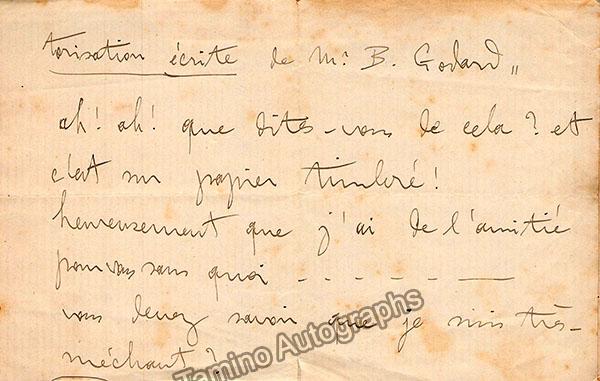 torisation écrite de Mr. B. Godard"
ah! ah! que dites-vous de cela? et
c'est sur papier timbré!
heureusement que j'ai de l'amitié
pour vous sans quoi - - - - - - —
vous devez savoir que je suis très-
méchant?
Tamino Autographs